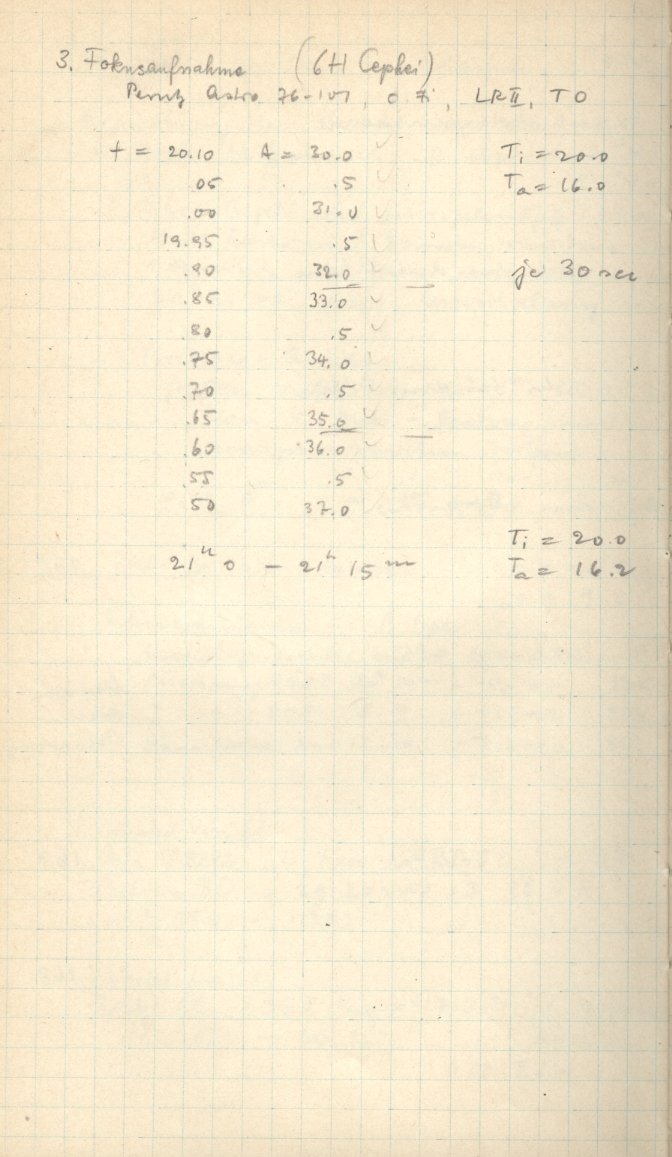 3. Fokusaufnahme (6H Cephei)
Perutz Astro 76-101, o. Fi, LRII, TO
f = 20.10 A = 30.0 ✓ Ti = 20.0
.05 .5 ✓ Ta = 16.0
.00 31.0 ✓
19.95 .5 ✓
.90 32.0 ✓ — je 30 sec
.85 33.0 ✓
.80 .5 ✓
.75 34.0 ✓
.70 .5 ✓
.65 35.0 ✓ —
.60 36.0 ✓
.55 .5 ✓
50 37.0
Ti = 20.0
21h 0 – 21h 15m Ta = 16.2